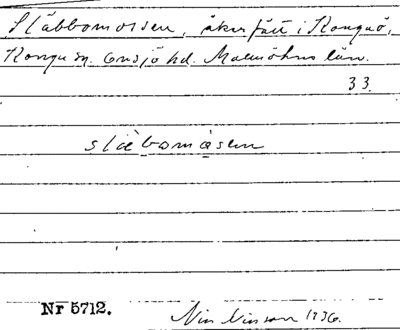 Släbbomossen, åkerfält i Konga nö,
Konga sn. Onsjö hd. Malmöhus län.
33.
släbomåsen
Nr 5712.
Nils Nilsson 1936.